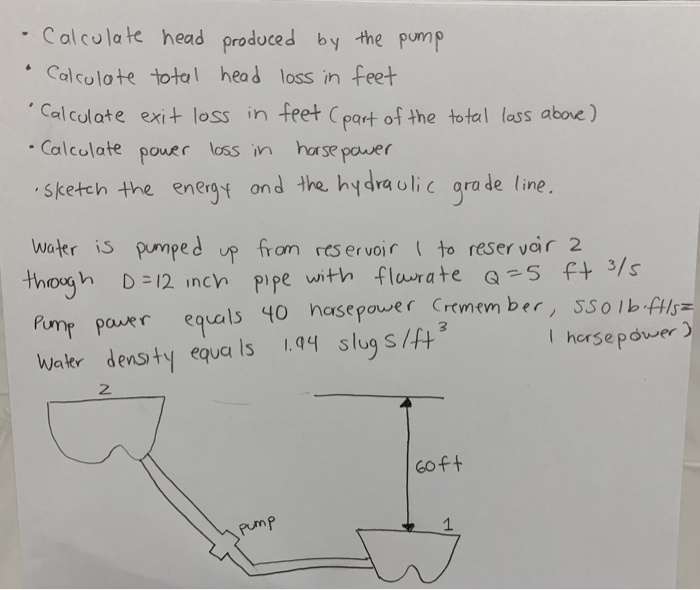 • Calculate head produced by the pump
• Calculate total head loss in feet
• Calculate exit loss in feet (part of the total loss above)
• Calculate power loss in horsepower
• Sketch the energy and the hydraulic grade line.
Water is pumped up from reservoir 1 to reservoir 2
through D=12 inch pipe with flowrate Q=5 ft 3/s
Pump power equals 40 horsepower (remember, 550 lb·ft/s=
1 horsepower)
Water density equals 1.94 slugs/ft3
2
60ft
pump
1